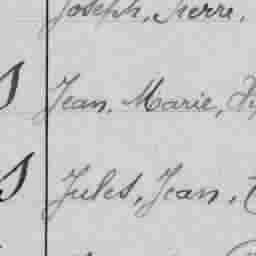 Joseph, Pierre,
Jean, Marie,
Jules, Jean,